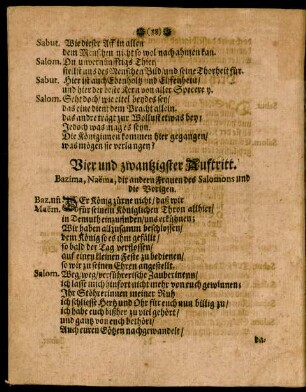 (22)
Sabut. Wie dieser Aff in allen
dem Menschen nicht so wol nachahmen kan.
Salom. Du unvernünfftigs Thier
stellst uns des Menschen Bild und seine Thorheit für.
Sabut. Hier ist auch Ebenholtz und Elffenbein/
und hier der beste Kern von aller Specerey.
Salom. Seht doch/ wie eitel beydes sey/
das eine dient dem Pracht allein.
das andre trägt zur Wollust etwas bey;
Jedoch was mag es seyn.
Die Königinnen kommen hier gegangen/
was mögen sie verlangen?
Vier und zwantzigster Aufftritt.
Bazima, Naëma, die andern Frauen des Salomons und
die Vorigen.
Baz. nū DEr König zürne nicht/ daß wir
Naëm. für seinem Königlichen Thron allhier/
in Demuth einzufinden/ uns erkühnen;
Wir haben allzusamm beschlossen/
dem König so es ihm gefällt/
so bald der Tag verflossen/
auf einen kleinen Feste zu bedienen/
so wir zu seinen Ehren angestellt.
Salom. Weg/weg/ verführerische Zauberinnen/
ich lasse mich hinfort nicht mehr von euch gewinnen;
Ihr Stöhrerinnen meiner Ruh
ich schliesse Hertz und Ohr für euch nun billig zu/
ich habe euch bißher zu viel gehört/
und gantz von euch bethört/
Auch euren Götzen nachgewandelt/
da-